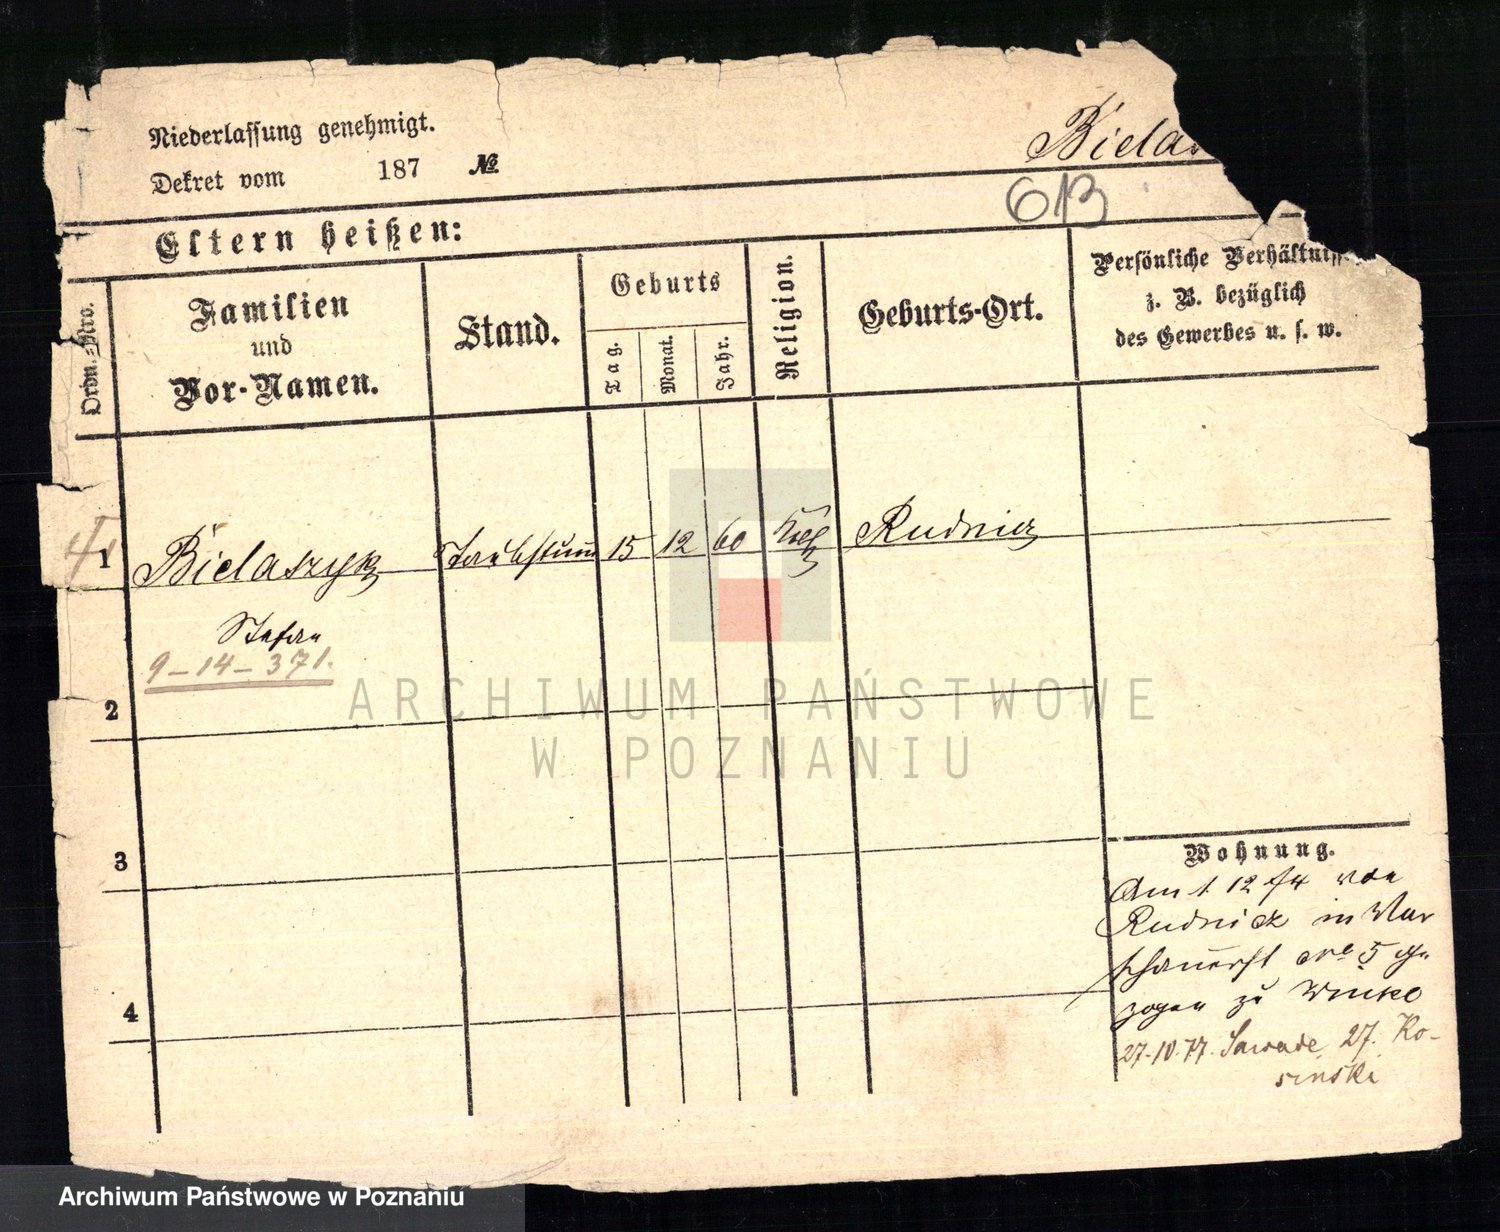 Niederlassung genehmigt.
Dekret vom 187 №
Bielas
613
Eltern heißen:
Ordn.-Nro.
Familien
und
Vor-Namen.
Stand.
Geburts
Tag.
Monat.
Jahr.
Religion.
Geburts-Ort.
Persönliche Verhältniss
z. B. bezüglich
des Gewerbes u. s. w.
1 Bielaszyk Taubstumm 15 12 60 Kath Rudnicz
Stefan
9-14-371.
2
3
4
Wohnung.
Am 1 12 74 von
Rudnicz in War
schauerst No 5 ge
zogen zu
27.10.77. Sawade, 27. Ko-
sinski
ARCHIWUM PAŃSTWOWE
W POZNANIU
Archiwum Państwowe w Poznaniu